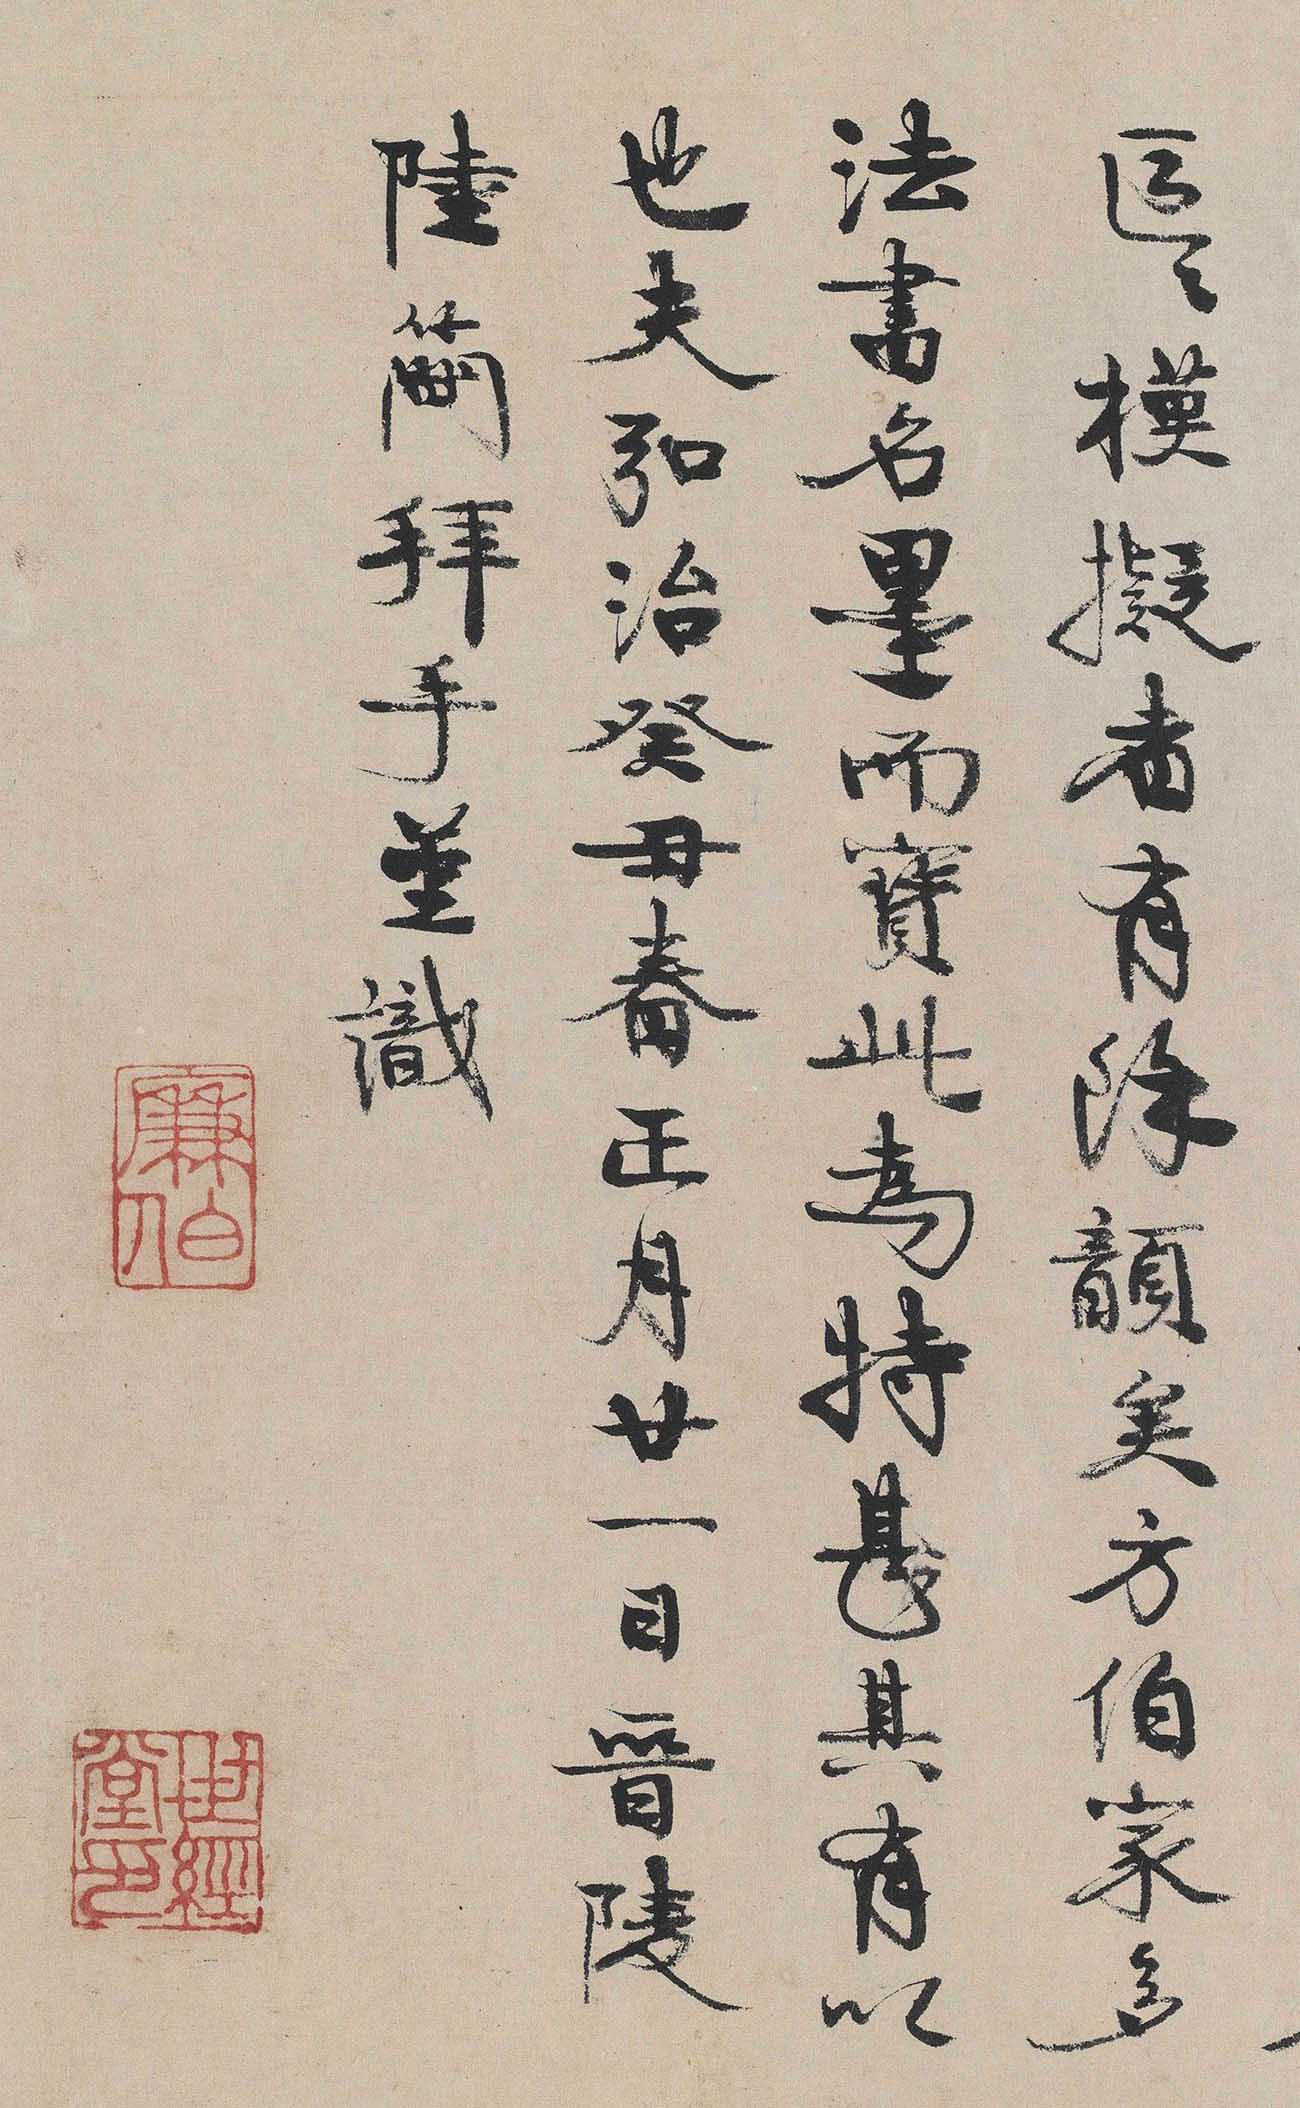 區〻模擬者有除顏矣方伯家多
法書名墨而寶此為特甚其有以
也夫弘治癸丑春正月廿一日晉陵
陸簡拜手並識
廉伯
世經堂印